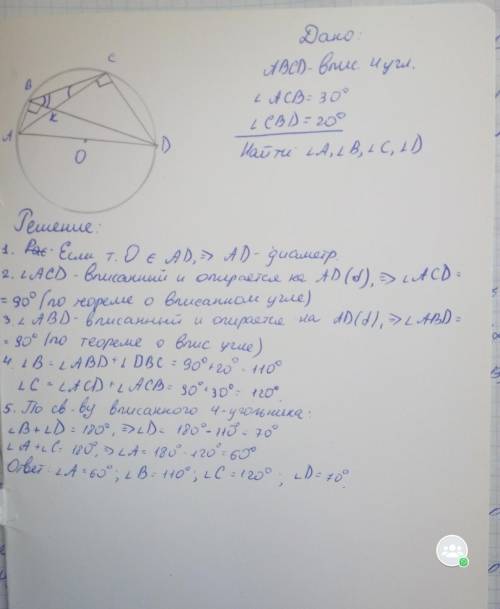 Дано:
ABCD - впис. 4 угл.
∠ACB = 30°
∠CBD = 20°
Найти: ∠A, ∠B, ∠C, ∠D
C
B
K
A
D
O
Решение:
1. Если т. O ∈ AD, ⇒ AD - диаметр.
2. ∠ACD - вписанный и опирается на AD(d), ⇒ ∠ACD =
= 90° (по теореме о вписанном угле)
3. ∠ABD - вписанный и опирается на AD(d), ⇒ ∠ABD =
= 90° (по теореме о впис угле)
4. ∠B = ∠ABD + ∠DBC = 90° + 20° = 110°
∠C = ∠ACD + ∠ACB = 90° + 30° = 120°
5. По св-ву вписанного 4-угольника:
∠B + ∠D = 180°, ⇒ ∠D = 180° - 110° = 70°
∠A + ∠C = 180°, ⇒ ∠A = 180° - 120° = 60°
Ответ: ∠A = 60°; ∠B = 110°; ∠C = 120°; ∠D = 70°.